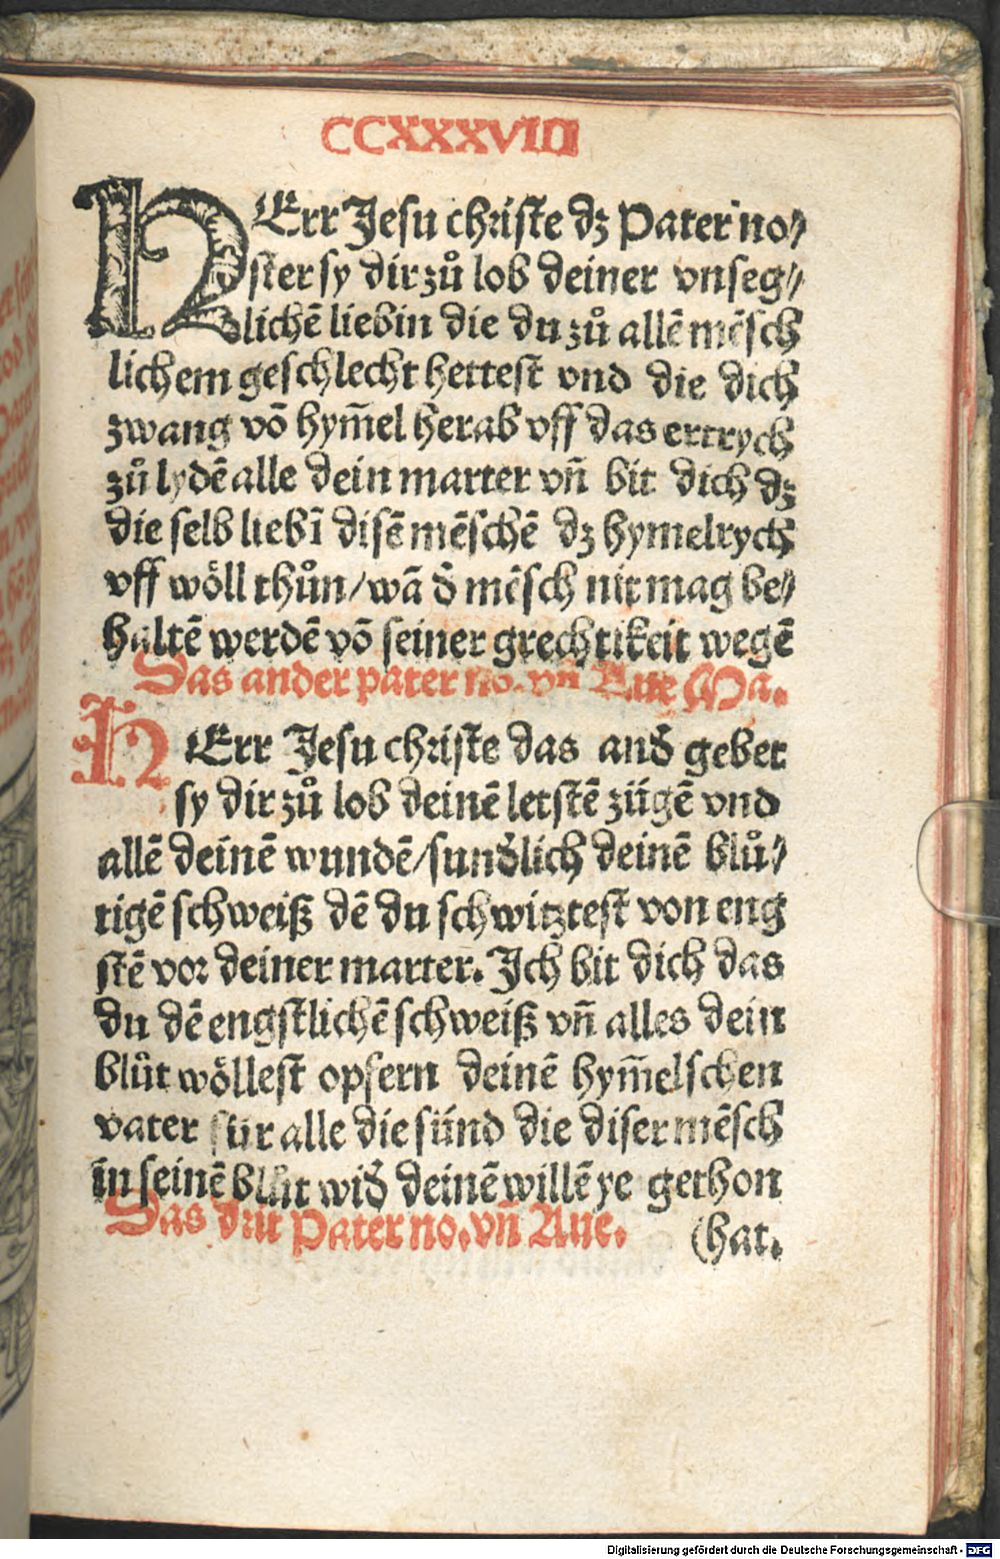 CCXXXVIII
HErr Jesu christe dz Pater no⸗
ster sy dir zů lob deiner vnseg⸗
lichē liebin die du zů allē mēsch
lichem geschlecht hettest vnd die dich
zwang vō hym̄el herab vff das ertrych
zů lydē alle dein marter vn̄ bit dich dz
die selb liebī disē mēschē dz hymelrych
vff wöll thůn/wā d̄ mēsch nit mag be⸗
haltē werdē vō seiner grechtikeit wegē
Das ander pater no. vn̄ Aue Ma.
HErr Jesu christe das and̄ gebet
sy dir zů lob deinē letstē zügē vnd
allē deinē wundē/sund̄lich deinē blů⸗
tigē schweiß dē du schwitztest von eng
stē vor deiner marter. Ich bit dich das
du dē engstlichē schweiß vn̄ alles dein
blůt wöllest opfern deinē hym̄elschen
vater für alle die sünd die diser mēsch
in seinē blůt wid̄ deinē willē ye gethon
(hat.
Das drit Pater no. vn̄ Aue.
Digitalisierung gefördert durch die Deutsche Forschungsgemeinschaft - DFG